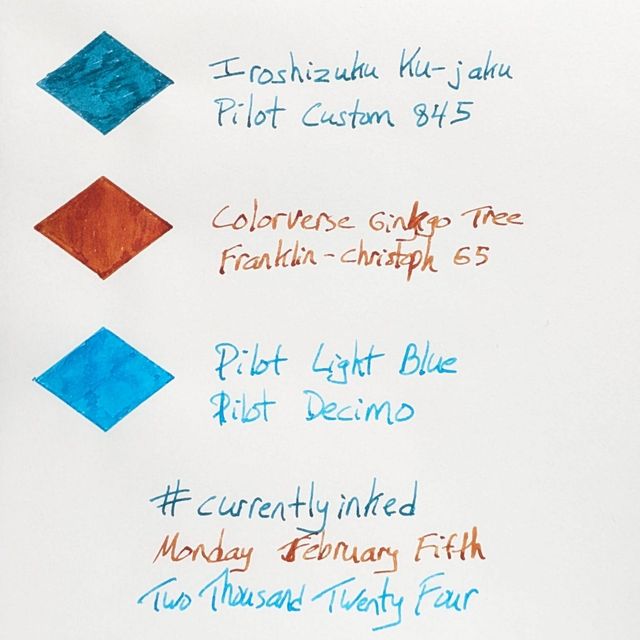 Iroshizuku Ku-jaku
Pilot Custom 845
Colorverse Ginkgo Tree
Franklin-Christoph 65
Pilot Light Blue
Pilot Decimo
#currentlyinked
Monday February Fifth
Two Thousand Twenty Four